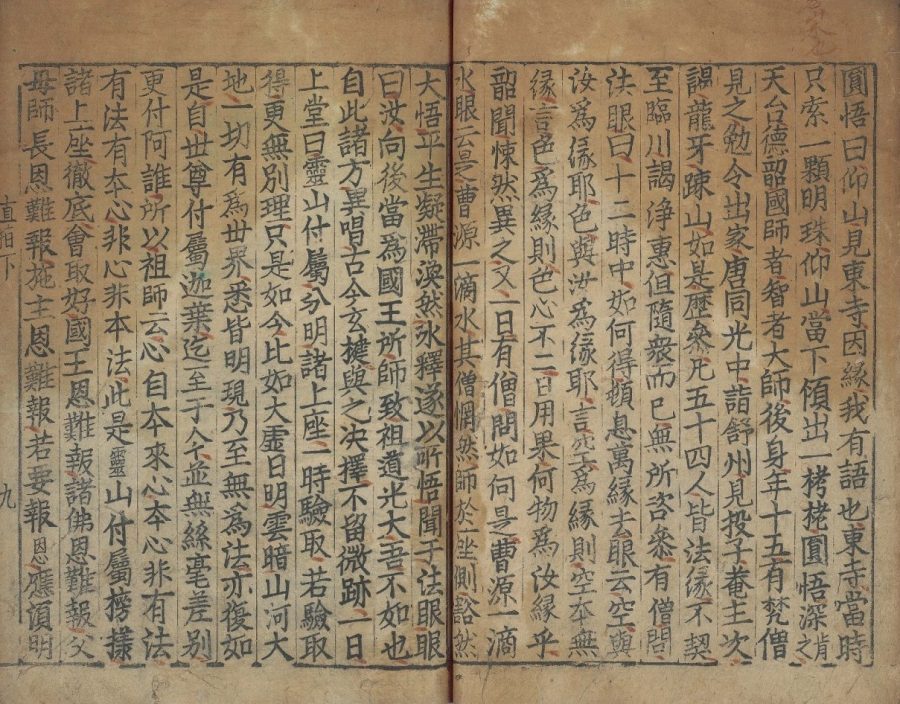 圓悟曰仰山見東寺因緣我有語也東寺當時
只索一顆明珠仰山當下傾出一栲栳圓悟深肯之
天台德韶國師者智者大師後身年十五有梵僧
見之勉令出家唐同光中詣舒州見投子菴主次
謁龍牙踈山如是歷叅凡五十四人皆法緣不契
至臨川謁淨惠但隨衆而已無所咨叅有僧問
法眼曰十二時中如何得頓息萬緣去眼云空與
汝爲緣耶色與汝爲緣耶言空爲緣則空本無
緣言色爲緣則色心不二日用果何物爲汝緣乎
韶聞悚然異之又一日有僧問如何是曹源一滴
水眼云是曹源一滴水其僧惘然師於坐側豁然
大悟平生疑滯渙然氷釋遂以所悟聞于法眼眼
曰汝向後當爲國王所師致祖道光大吾不如也
自此諸方異唱古今玄揵與之决擇不留微跡一日
上堂曰靈山付屬分明諸上座一時驗取若驗取
得更無別理只是如今比如大虛日明雲暗山河大
地一切有爲世界悉皆明現乃至無爲法亦復如
是自世尊付屬迦葉迄至于今並無絲毫差別
更付阿誰所以祖師云心自本來心本心非有法
有法有本心非心非本法此是靈山付屬榜樣
諸上座徹底會取好國王恩難報諸佛恩難報父
母師長恩難報施主恩難報若要報恩應須明
直指下 九